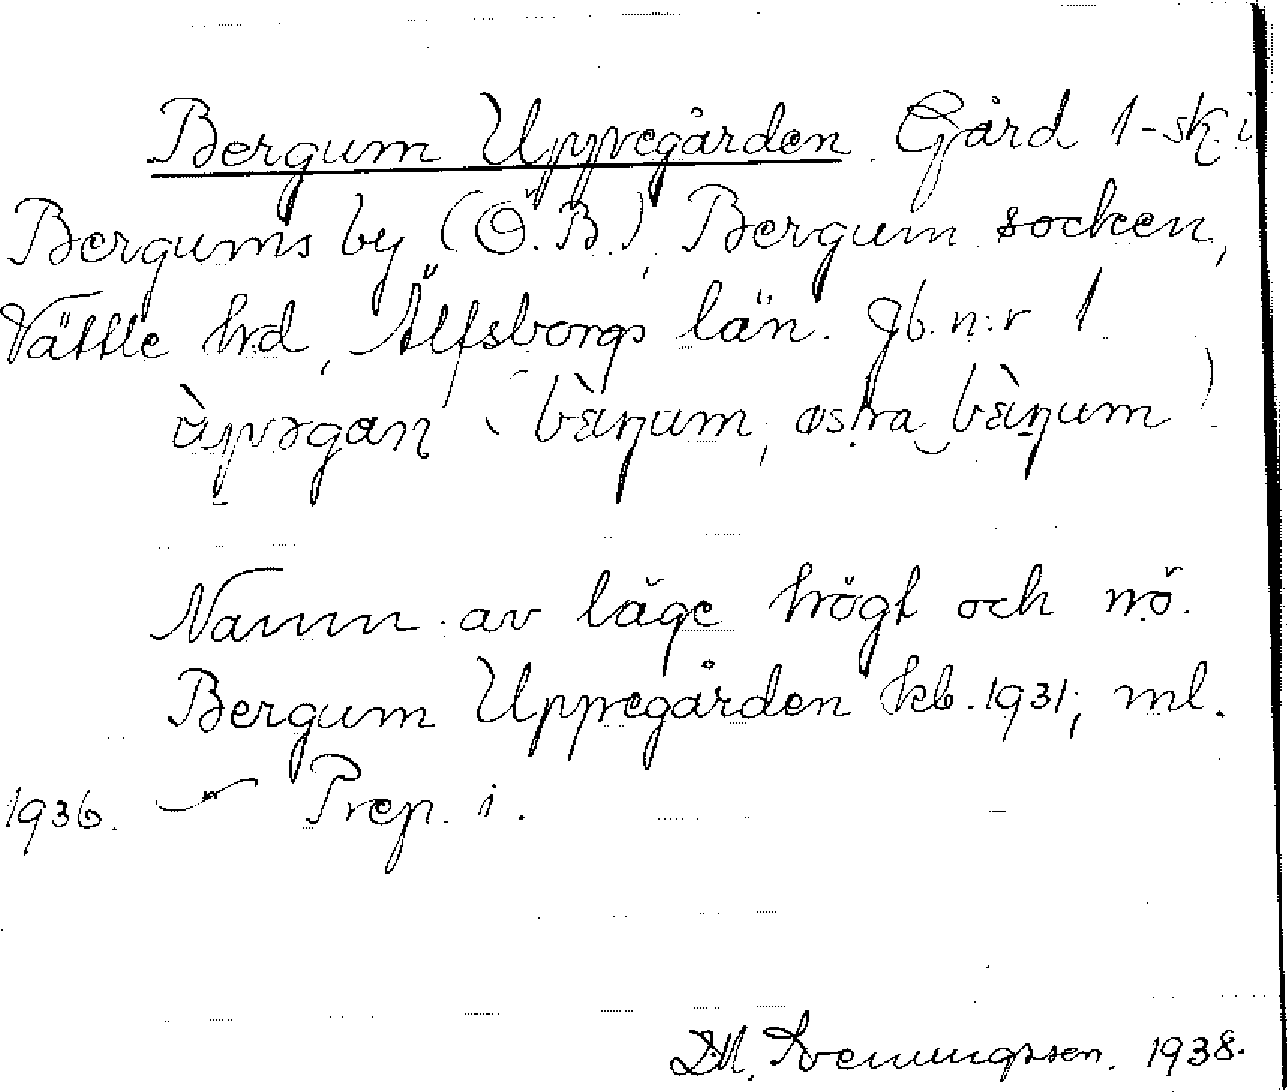 Bergum Uppegården. Gård 1-sk. i
Bergums by (Ö. B.), Bergum socken,
Vättle hrd, Älfsborgs län. Jb. n:r 1.
ùpəgaɳ (bæ̀ŋum, østra bæ̀ŋum)
Namn av läge högt och nö.
Bergum Uppegården kb. 1931; ml.
1936. — Prep. i.
1938.